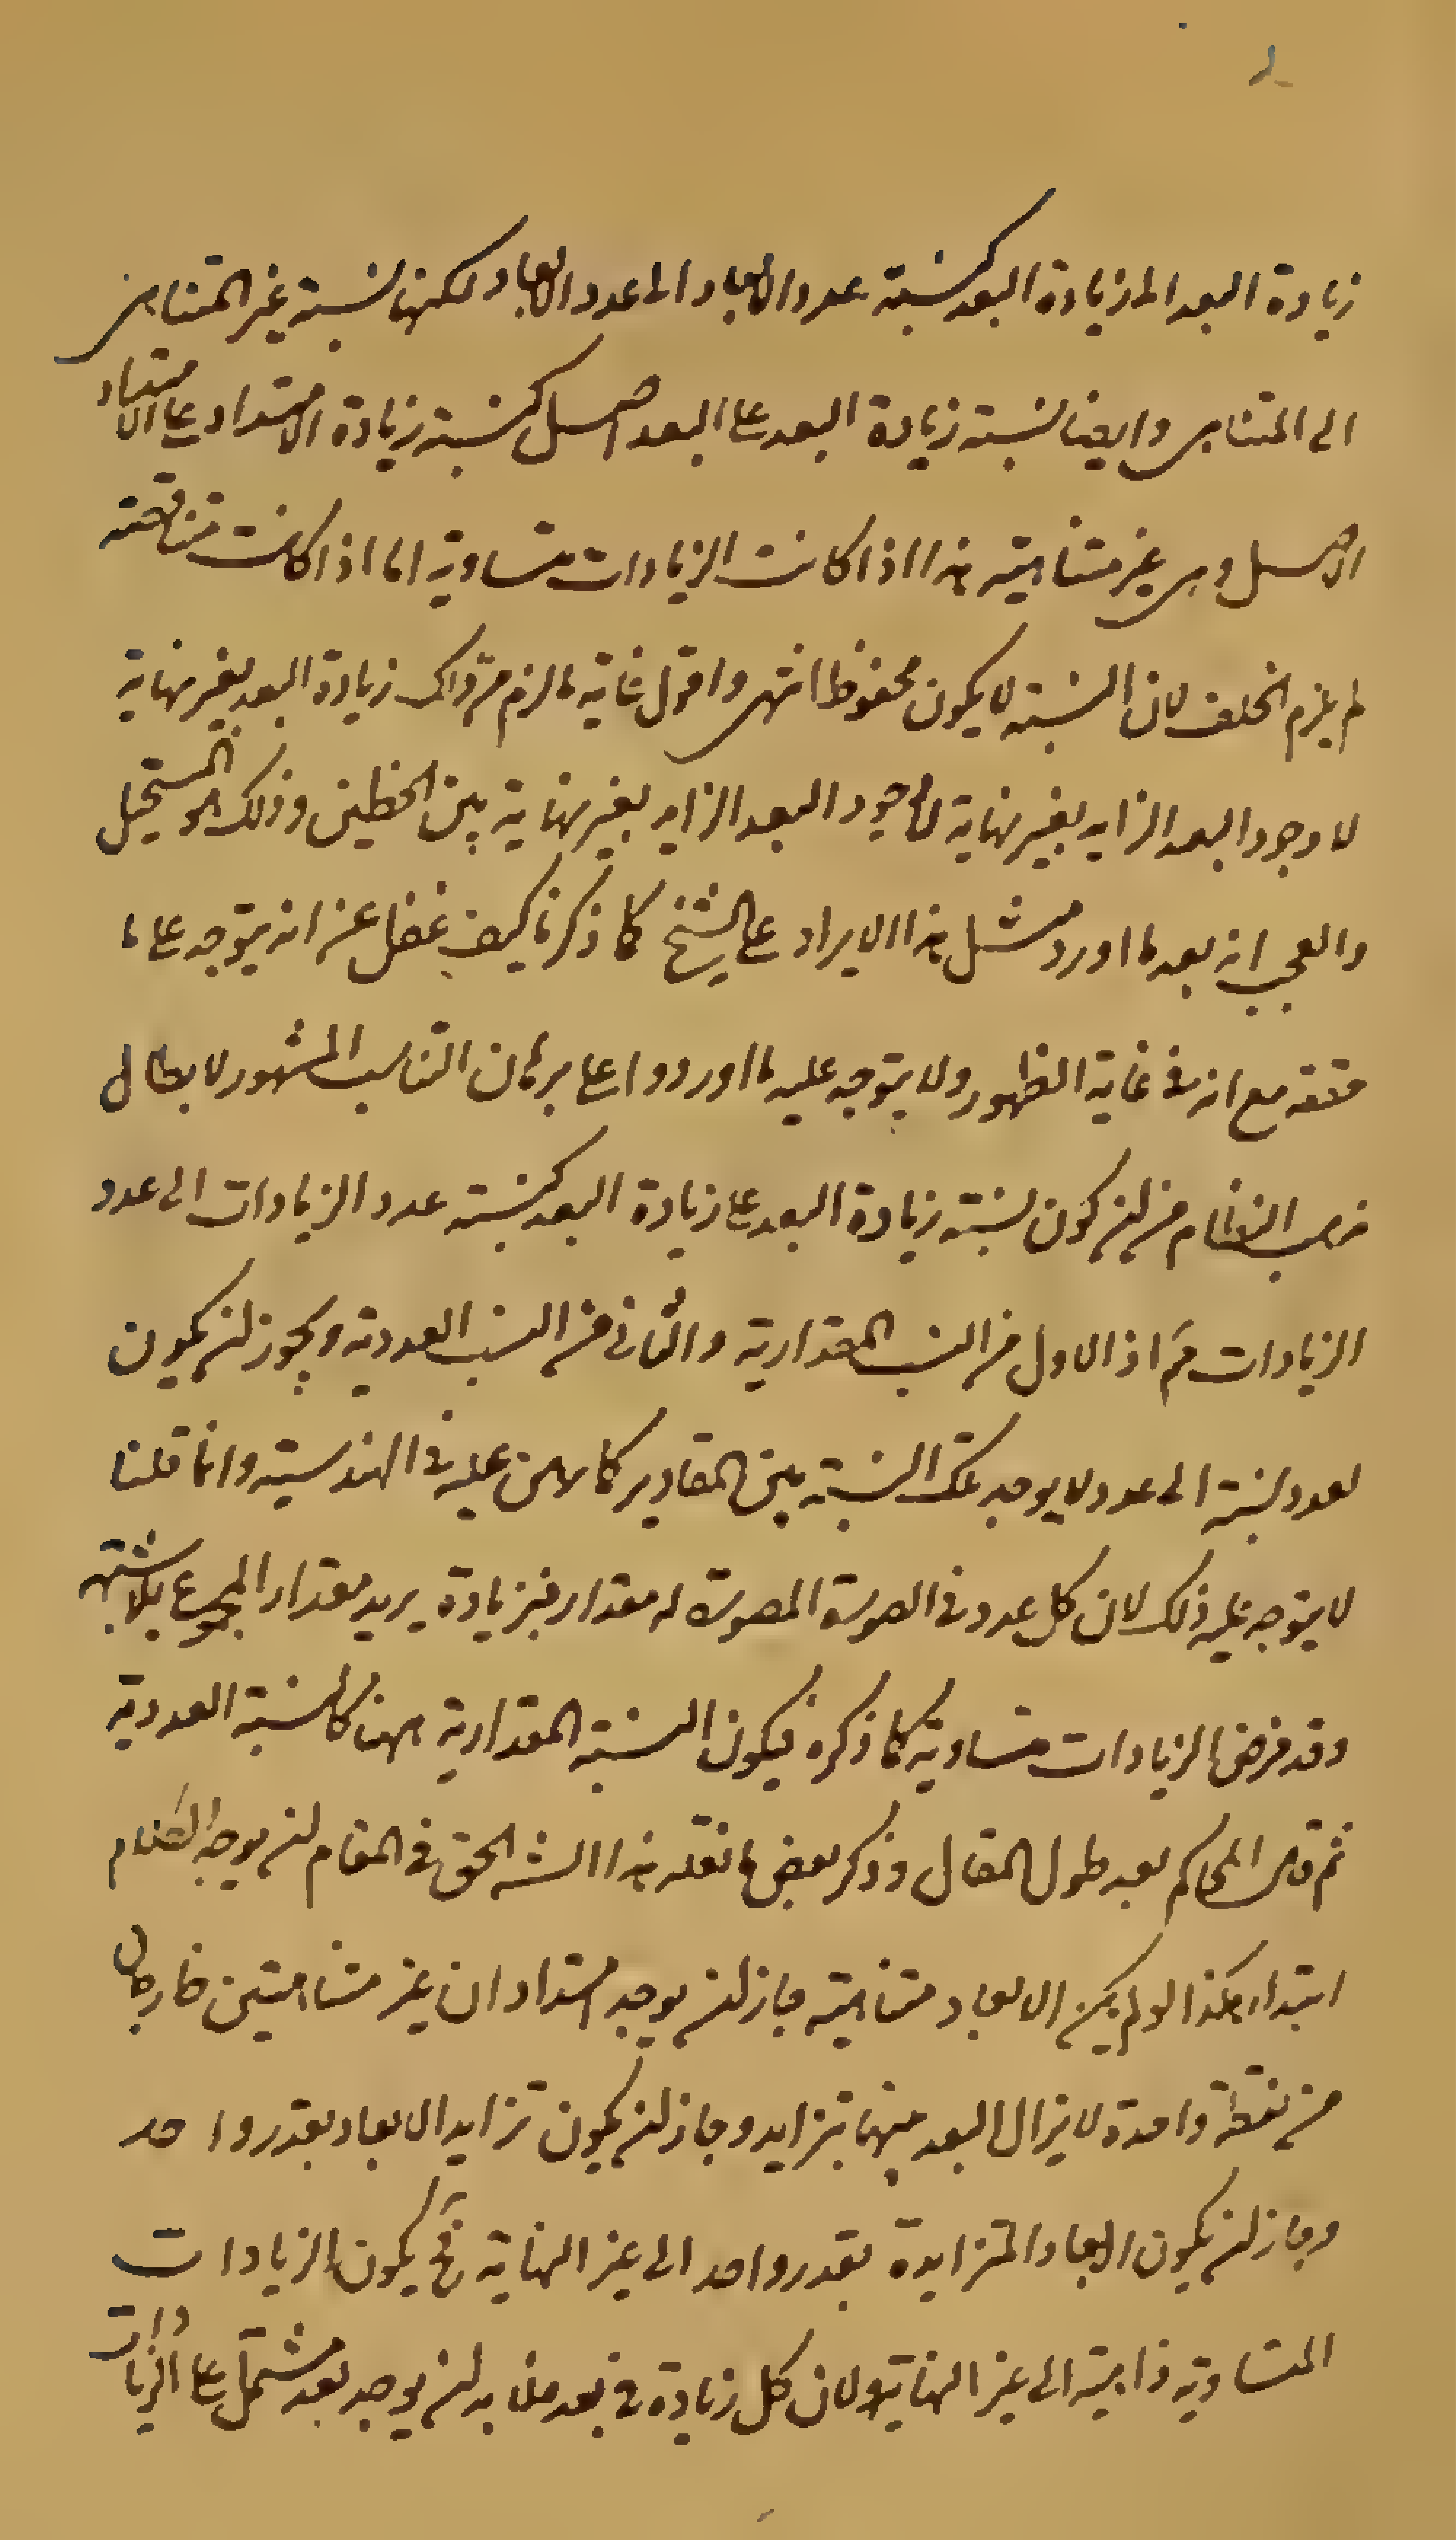 زيادة البعد الى زيادة البعد كنسبة عدد الابعاد الى عدد الابعاد لكنها نسبة غير المتناهى
الى المتناهى وايضا نسبة زيادة البعد على البعد اصل كنسبة زيادة الامتداد على الامتداد
الاصل وهى غير متناهية هذا اذا كانت الزيادات متساوية اما اذا كانت متناقصة
لم يلزم الخلف لان النسبة لا يكون محفوظا انتهى واقول غاية ما لزم من ذاك زيادة البعد بغير نهاية
لا وجود البعد الزايد بغير نهاية لا وجود البعد الزايد بغير نهاية بين الخطين وذلك هو المستحيل
والعجب انه بعد ما اورد مثل هذا الايراد على الشيخ كما ذكرنا كيف غفل عن انه يتوجه على ما
حققه مع انه فى غاية الظهور ولا يتوجه عليه ما اوردوا على برهان التناسب المشهور لابطال
مذهب النظام من لن كون نسبة زيادة البعد على زيادة البعد كنسبة عدد الزيادات الى عدد
الزيادات مم اذ الاول من النسب المقدارية والثانى من النسب العددية ويجوز لن يكون
لعدد نسبة الى عدد لا يوجد تلك النسبة بين المقادير كما برهن عليه فى الهندسية وانما قلنا
لا يتوجه عليه ذلك لان كل عدد فى الصورة المصورة له مقدار فبزيادة يزيد مقدار المجموع بلا شبهة
وقد فرض الزيادات متساوية كما ذكره فيكون النسبة المقدارية ههنا كالنسبة العددية
ثم قال المحاكم بعد طول المقال وذكر بعض ما نقله هذا الش الحق فى المقام لن يوجه الكلام
ابتداء هكذا لو لم يكن الابعاد متناهية جاز لن يوجد امتدادان غير متناهيتين خارجان
من نقطة واحدة لا يزال البعد بينهما يتزايد وجاز لن يكون تزايد الابعاد بقدر واحد
وجاز لن يكون الابعاد المتزايدة بقدر واحد الى غير النهاية فح يكون الزيادات
المتساوية ذاهبة الى غير النهاية ولان كل زيادة فى بعد فلا بد لن يوجد بعد مشتمل على الزيادات